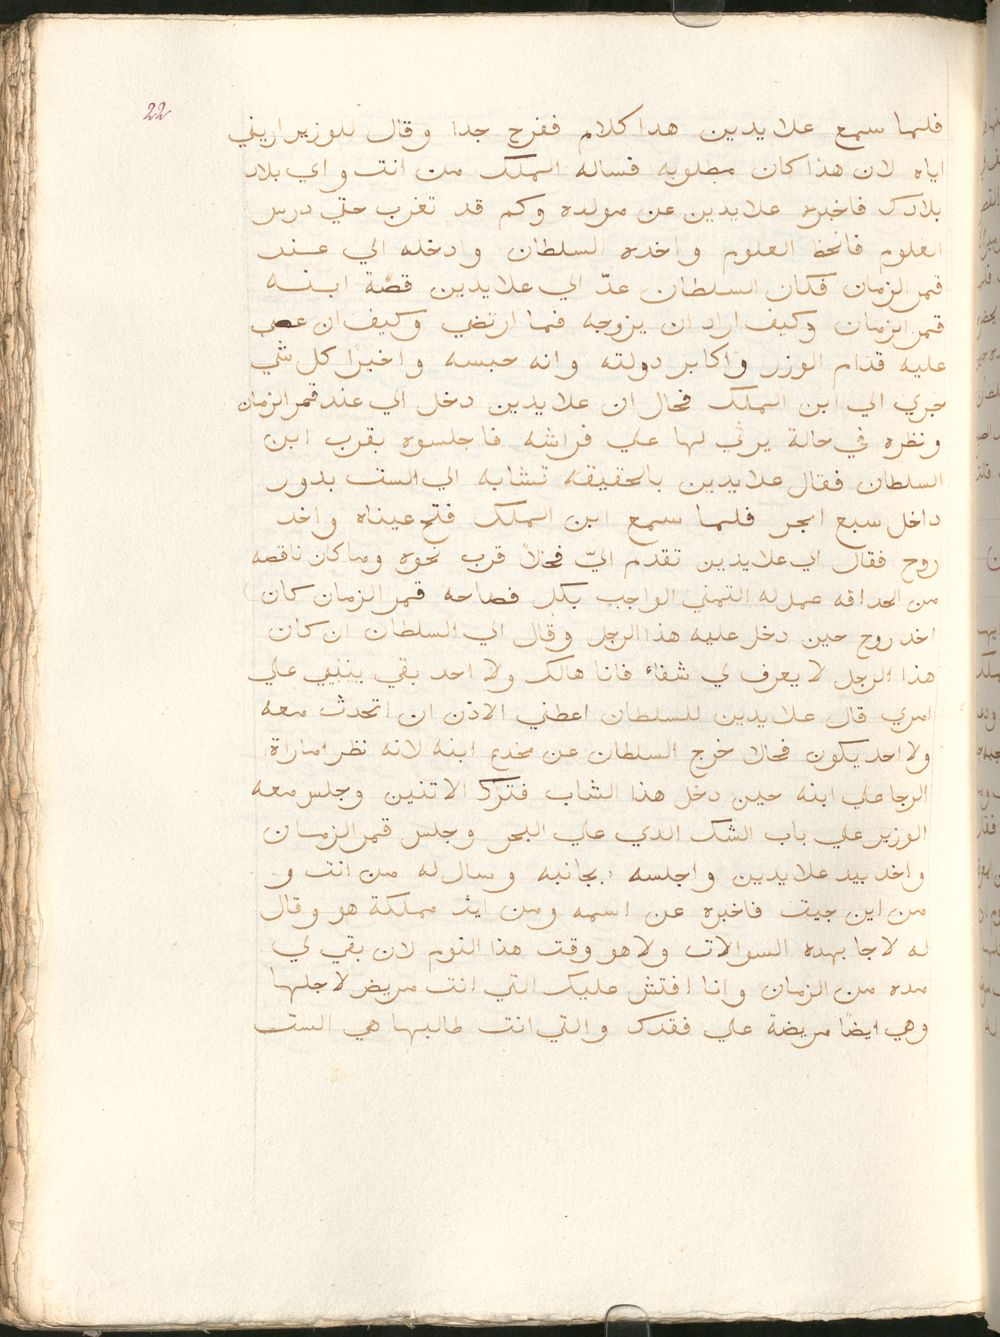 22
فلما سمع علايدين هدا كلام ففرح جدا وقال للوزير اريني
اياه لان هذا كان مطلوبه فساله الملك من انت و اي بلاد
بلادك فاخبره علايدين عن مولده وكم قد تغرب حتي درس
العلوم فانحظ العلوم واخده السلطان وادخله الي عند
قمر الزمان فكان السلطان عدّ الي علايدين قصّة ابنه
قمر الزمان وكيف اراد ان يزوجه فما ارتضي وكيف ان عصي
عليه قدام الوزر واكابر دولته وانه حبسه واخبرًا كل شي
جري الي ابن الملك فحال ان علايدين دخل الي عند قمر الزمان
ونظره في حالة يرثي لها علي فراشه فاجلسوه بقرب ابن
السلطان فقال علايدين بالحقيقه تشابه الي الست بدور
داخل سبع ابحر فلما سمع ابن الملك فتح عيناه واخد
روح فقال الي علايدين تقدم اليّ فحالاً قرب نحوه وماكان ناقصه
من الحداقه عمل له التمني الواجب بكل فصاحه قمر الزمان كان
اخد روح حين دخل عليه هذا الرجل وقال الي السلطان ان كان
هذا الرجل لا يعرف لي شفاء فانا هالك ولا احد بقي ينبيي علي
امري قال علايدين للسلطان اعطني الاذن ان اتحدث معه
ولا احد يكون فحالا خرج السلطان عن مخدع ابنه لانه نظر امارة
الرجا علي ابنه حين دخل هذا الشاب فترك الاتنين وجلس معه
الوزير علي باب الشك الدي علي البحر وجلس قمر الزمان
واخد بيد علايدين واجلسه بجانبه وسال له من انت و
من اين جيت فاخبره عن اسمه ومن ايت مملكة هو وقال
له لاجا بهده السوالات ولاهو وقت هذا النوم لان بقي لي
مده من الزمان وانا افتش عليك التي انت مريض لاجلها
وهي ايضًا مريضة علي فقدك والتي انت طالبها هي الست